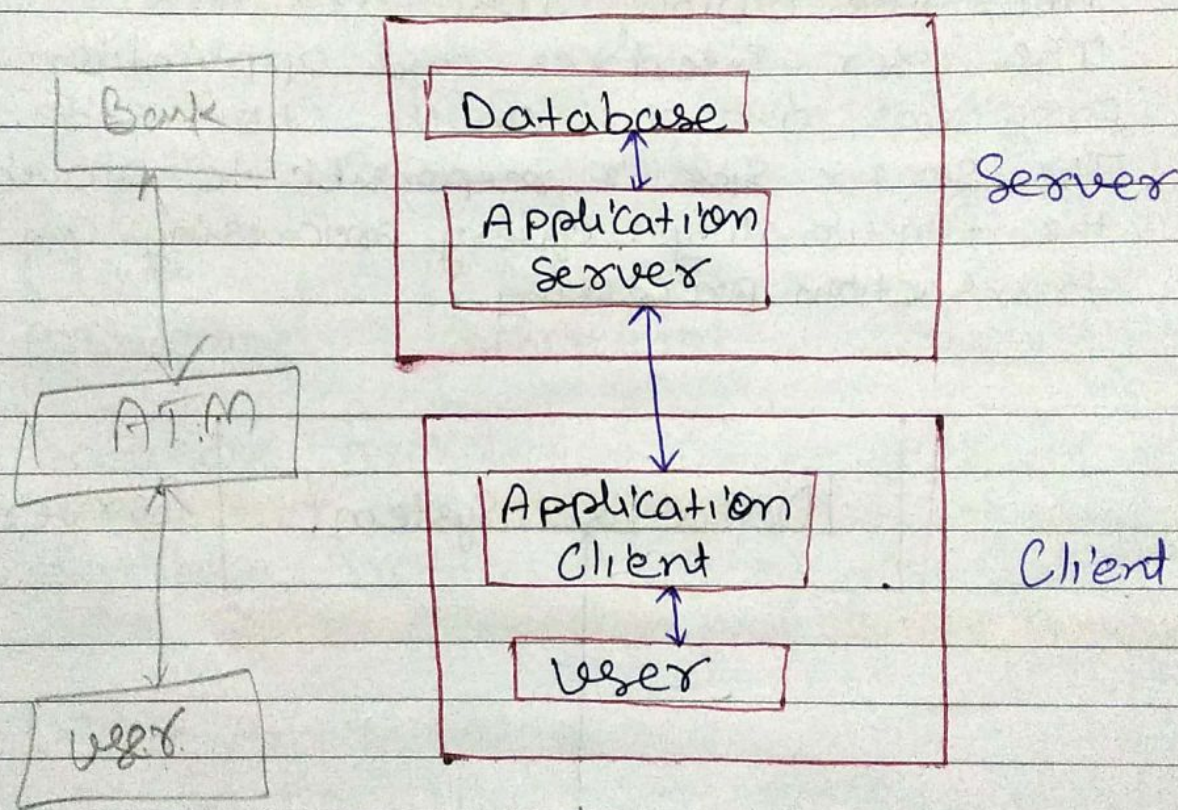 Bank
ATM
User
Database
Application
Server
Server
Application
Client
User
Client